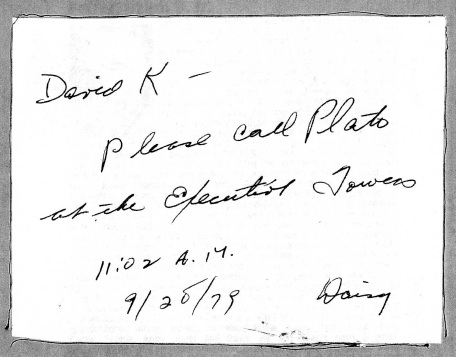 David K —
Please call Plato
at the Executive Towers
11:02 A.M.
9/20/79 Daisy